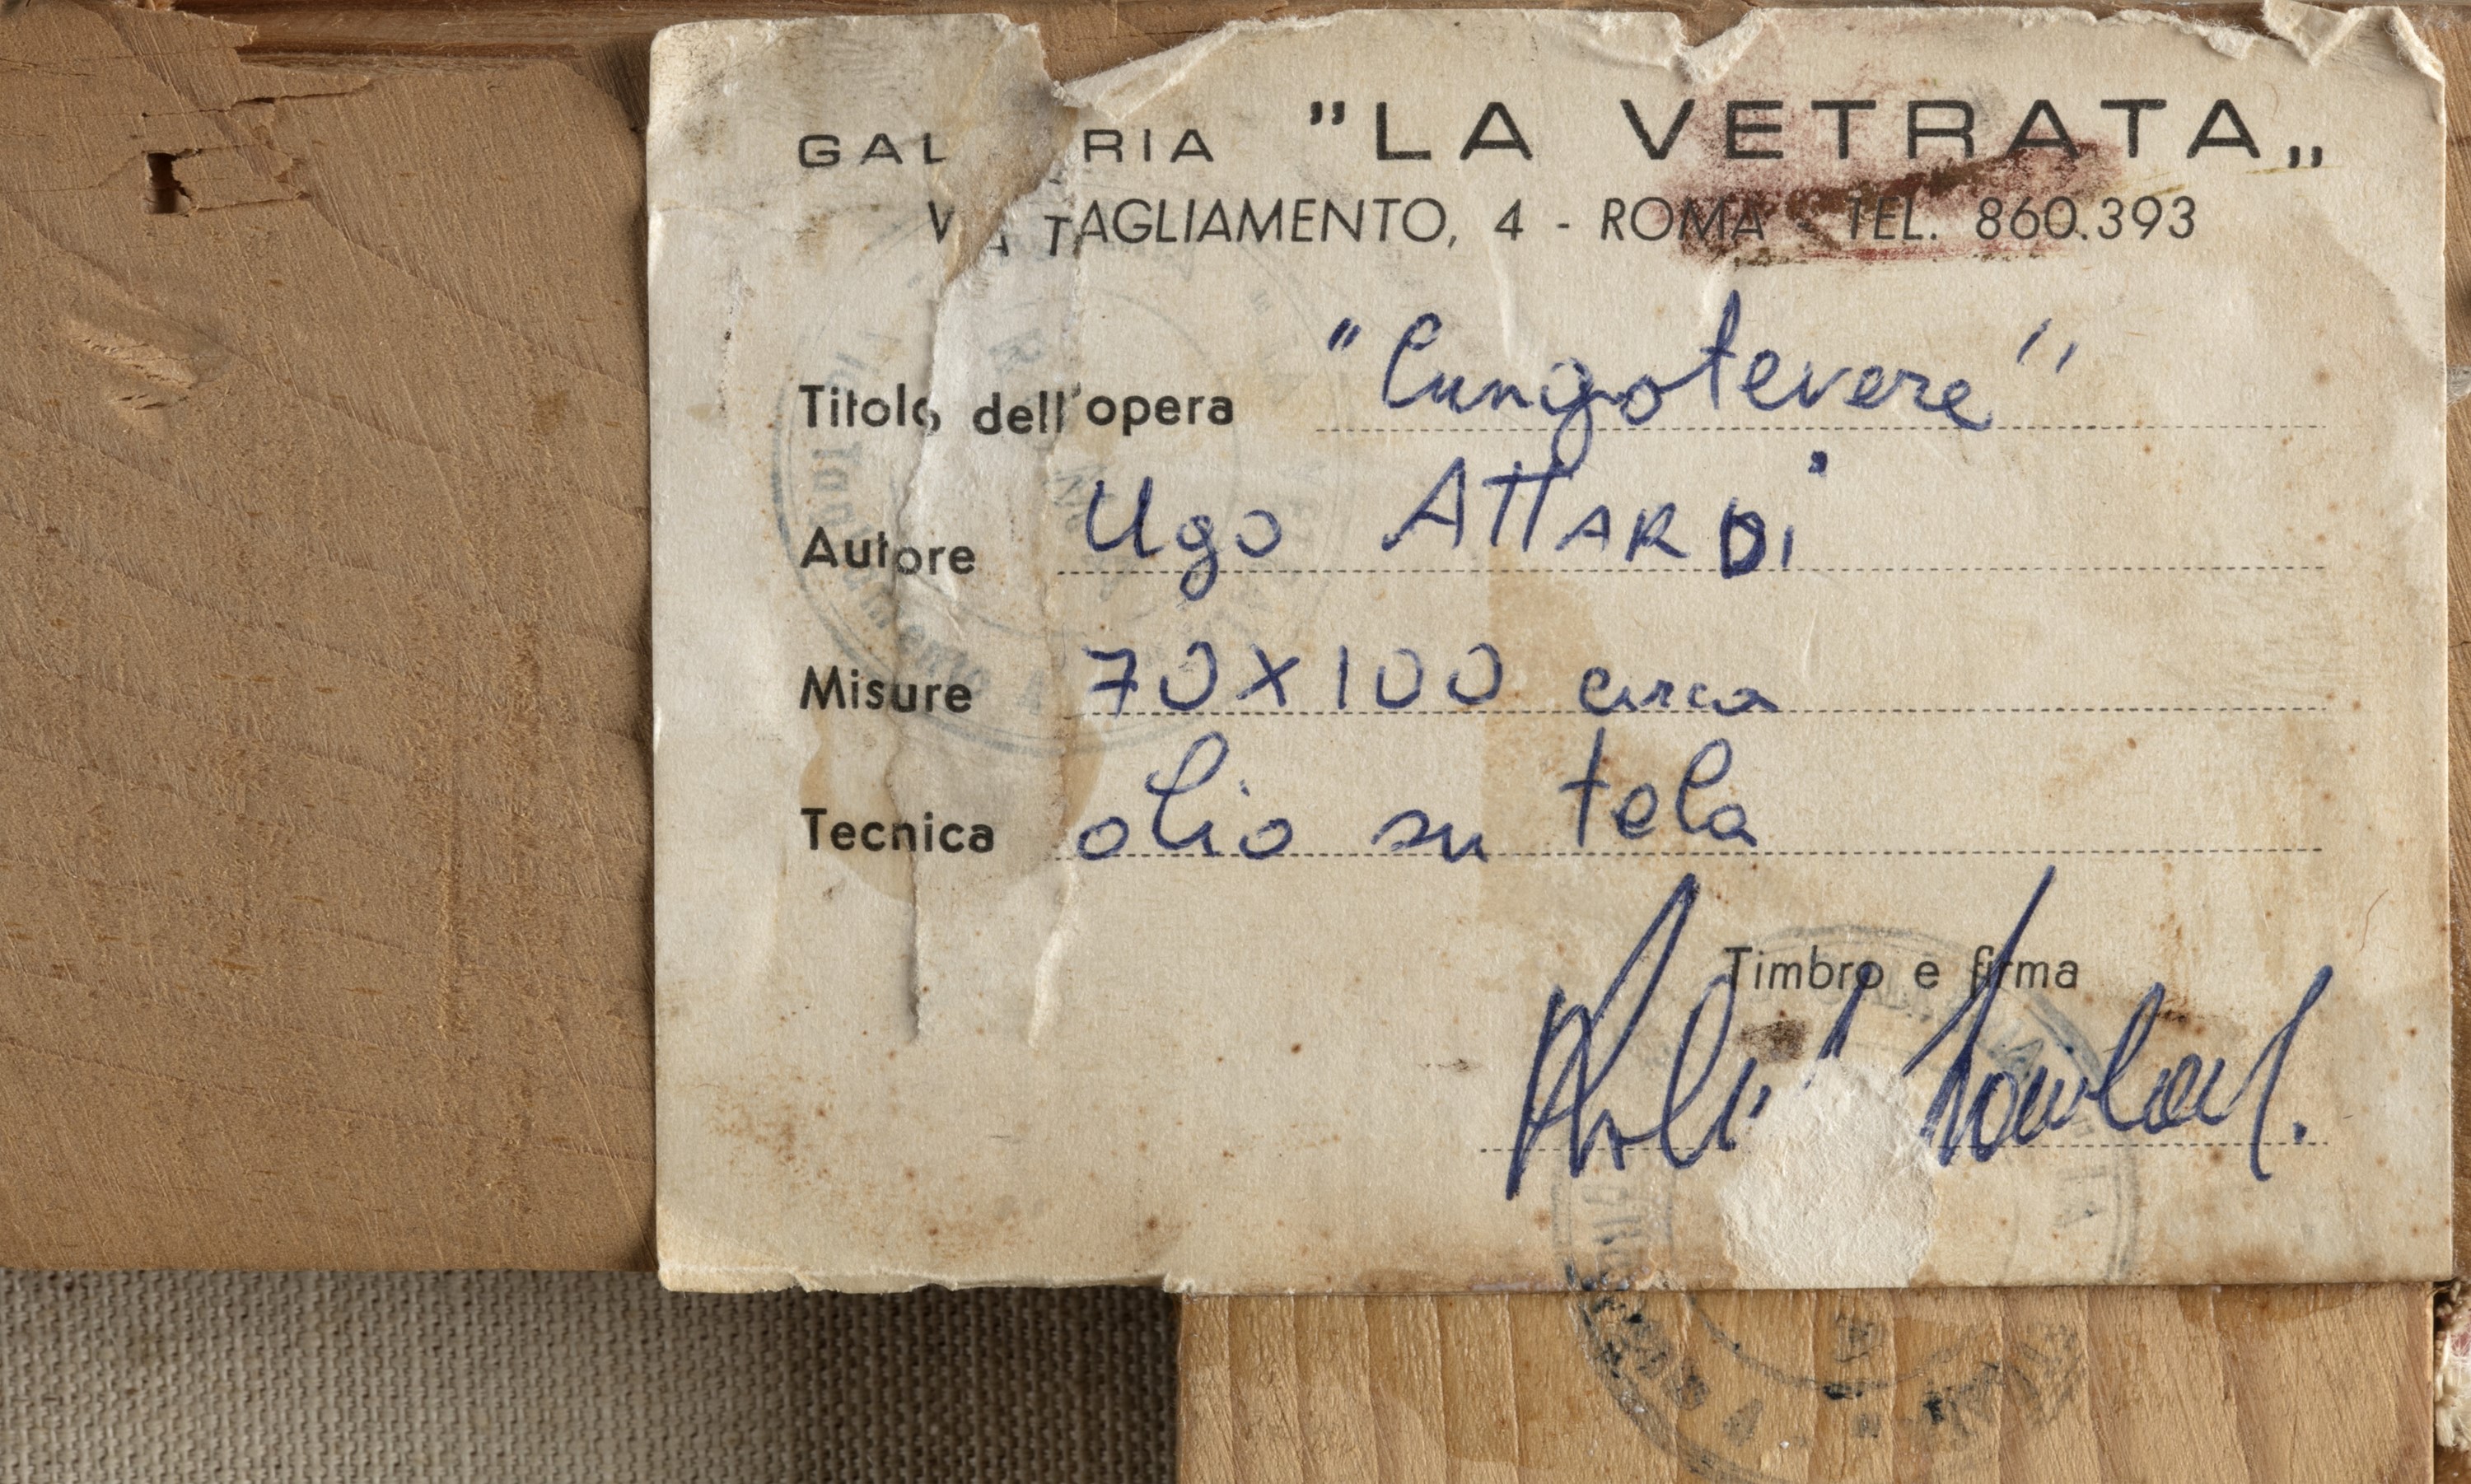 GAL RIA "LA VETRATA„
VIA TAGLIAMENTO, 4 - ROMA - TEL. 860.393
Titolo dell'opera "Lungotevere"
Autore Ugo ATTARDi
Misure 70X100 circa
Tecnica olio su tela
Timbro e firma